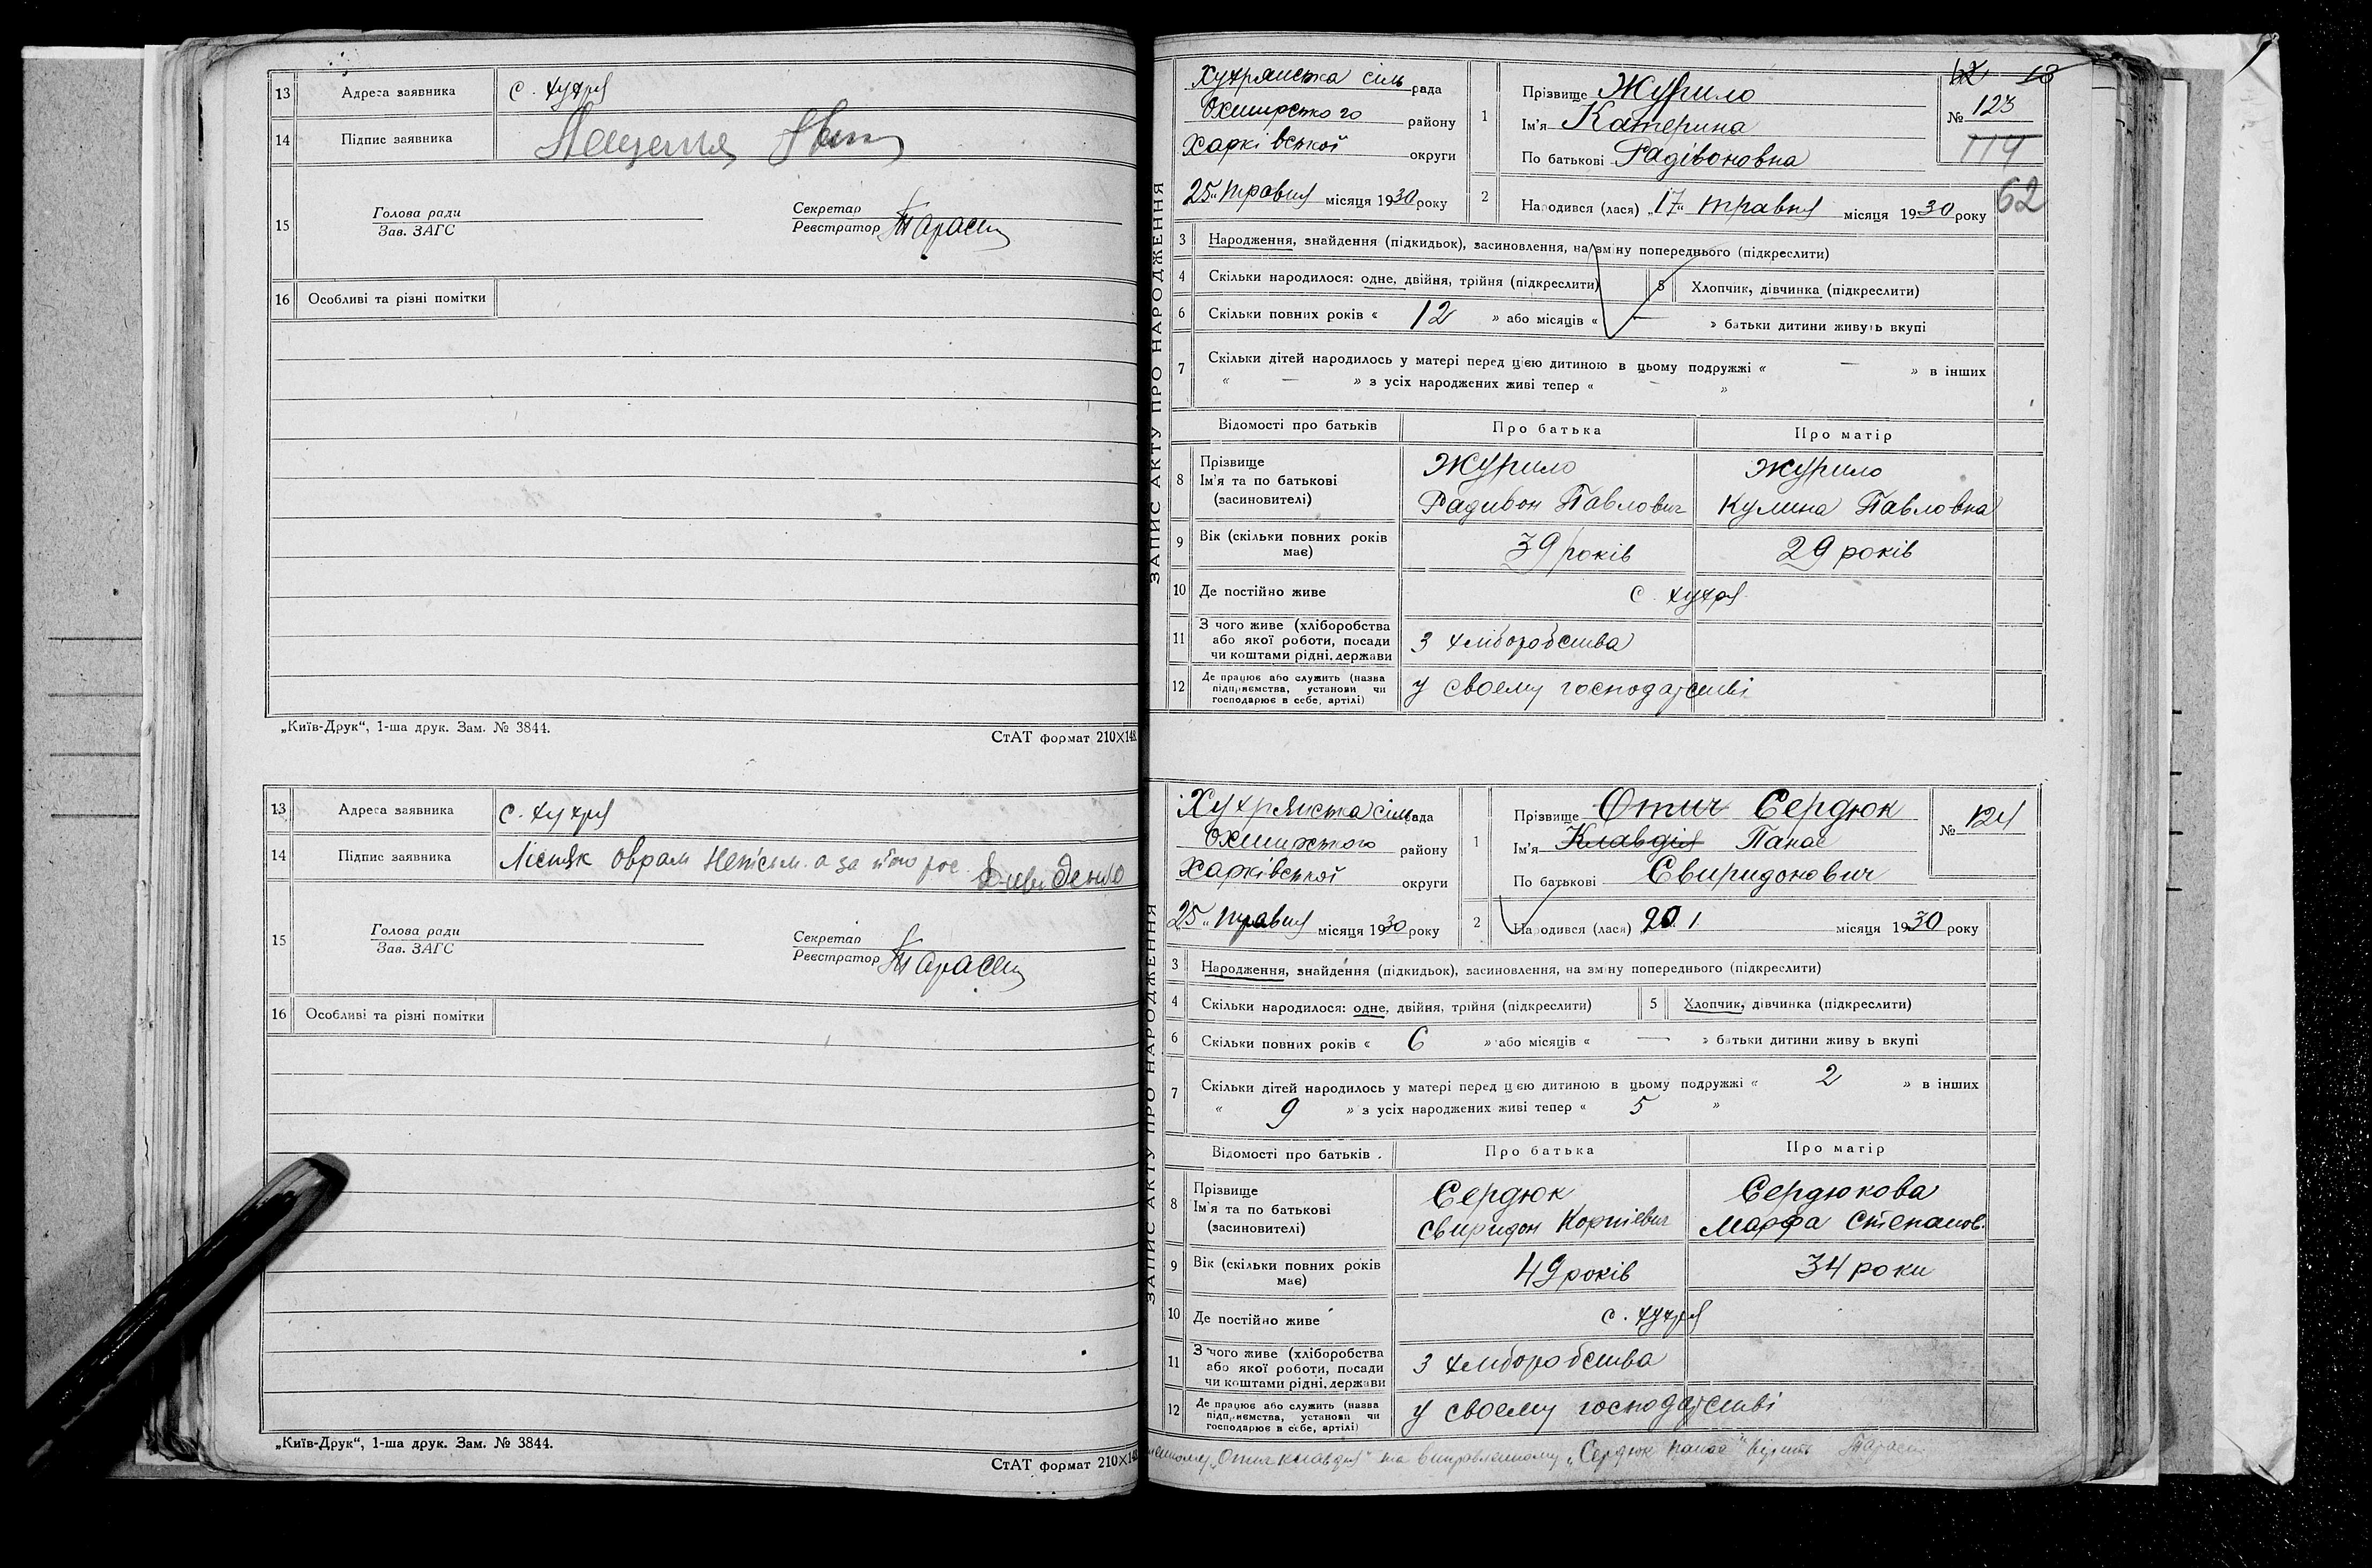 13 Адреса заявника с. Хухря
14 Підпис заявника
15 Голова ради
Зав. ЗАГС
Секретар
Реєстратор
16 Особливі та різні помітки
„Київ-Друк“, 1-ша друк. Зам. № 3844.
СтАТ формат 210×148
13 Адреса заявника с. Хухря
14 Підпис заявника Лісняк Оврам неписьм. а за його рос.
15 Голова ради
Зав. ЗАГС
Секретар
Реєстратор
16 Особливі та різні помітки
„Київ-Друк“, 1-ша друк. Зам. № 3844.
СтАТ формат 210×148
ЗАПИС АКТУ ПРО НАРОДЖЕННЯ
Хухрянська сіль рада
Охтирського району
Харківської округи
25 „ травня місяця 1930 року
13
№ 123
114
62
1 Прізвище Журило
Ім'я Катерина
По батькові Радівоновна
2 Народився (лася) „17“ травня місяця 1930 року
3 Народження, знайдення (підкидьок), засиновлення, на зміну попереднього (підкреслити)
4 Скільки народилося: одне, двійня, трійня (підкреслити) 5 Хлопчик, дівчинка (підкреслити)
6 Скільки повних років « 12 » або місяців « — » батьки дитини живуть вкупі
7 Скільки дітей народилось у матері перед цією дитиною в цьому подружжі « — » в інших
« — » з усіх народжених живі тепер « — »
Відомості про батьків Про батька Про матір
8 Прізвище Журило Журило
Ім'я та по батькові Радивон Павлович Кулина Павловна
(засиновителі)
9 Вік (скільки повних років має) 39 років 29 років
10 Де постійно живе с. Хухря
11 З чого живе (хліборобства
або якої роботи, посади з хліборобства
чи коштами рідні, держави
12 Де працює або служить (назва
підприємства, установи чи у своему господарстві
господарює в себе, артілі)
ЗАПИС АКТУ ПРО НАРОДЖЕННЯ
Хухрянська сіль рада
Охтирського району
Харківської округи
25 „ травня місяця 1930 року
№ 124
1 Прізвище Отич Сердюк
Ім'я Клавдія Панас
По батькові Свиридонович
2 Народився (лася) 20 1 місяця 1930 року
3 Народження, знайдення (підкидьок), засиновлення, на зміну попереднього (підкреслити)
4 Скільки народилося: одне, двійня, трійня (підкреслити) 5 Хлопчик, дівчинка (підкреслити)
6 Скільки повних років « 6 » або місяців « — » батьки дитини живу ь вкупі
7 Скільки дітей народилось у матері перед цією дитиною в цьому подружжі « 2 » в інших
« 9 » з усіх народжених живі тепер « 5 »
Відомості про батьків Про батька Про матір
8 Прізвище Сердюк Сердюкова
Ім'я та по батькові Свиридон Корнієвич Марфа Степанов.
(засиновителі)
9 Вік (скільки повних років має) 49 років 34 роки
10 Де постійно живе с. Хухря
11 З чого живе (хліборобства
або якої роботи, посади з хліборобства
чи коштами рідні, держави
12 Де працює або служить (назва
підприємства, установи чи у своему господарстві
господарює в себе, артілі)
„Отич Клавдія“ та виправленному „Сердюк Панас“ вірить